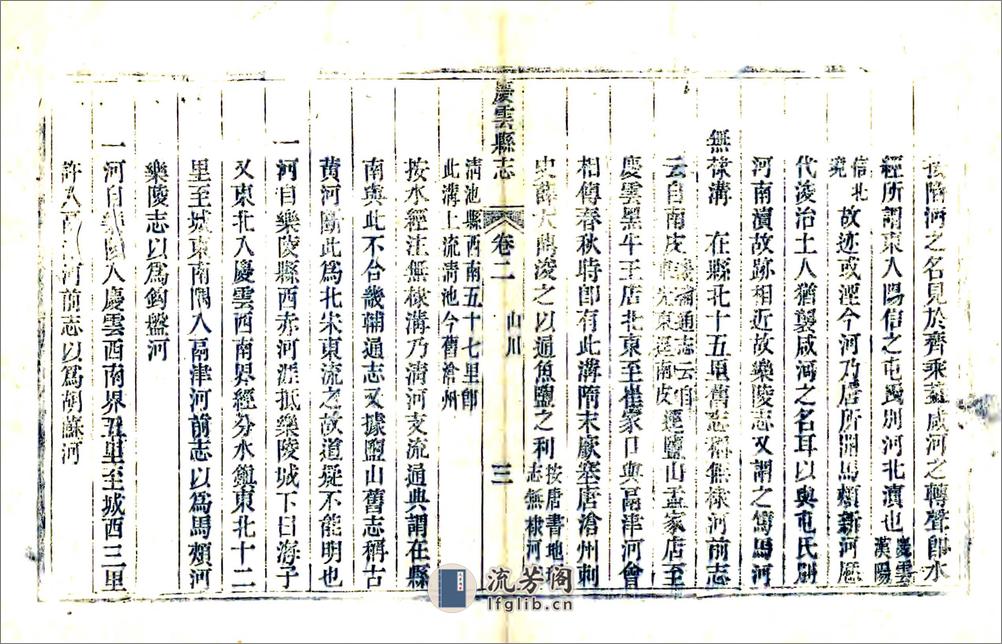 按隔河之名見於齊乘蓋咸河之轉聲卽水
經所謂東入陽信之屯氏別河北瀆也慶雲漢陽
信北境故迹或湮今河乃唐所開馬頰新河歷
代浚治土人猶襲咸河之名耳以與屯氏別
河南瀆故跡相近故樂陵志又謂之篤馬河
無棣溝 在縣北十五里舊志稱無棣河前志
云自南皮畿輔通志云自東逕南皮逕鹽山孟家店至
慶雲黑牛王店北東至崔家口與鬲津河會
相傳春秋時卽有此溝隋末廢塞唐滄州刺
史薛大鼎浚之以通魚鹽之利按唐書地理志無棣河
慶雲縣志 卷二 山川 三
清池縣西南五十七里卽此溝上流清池今舊滄州
按水經注無棣溝乃清河支流通典謂在縣
南與此不合畿輔通志又據鹽山舊志稱古
黃河斷此爲北宋東流之故道疑不能明也
一河自樂陵縣西赤河涯抵樂陵城下曰海子
又東北入慶雲西南界經分水鎮東北十二
里至城東南隅入鬲津河前志以爲馬頰河
樂陵志以爲鉤盤河
一河自樂陵入慶雲西南界五里至城西三里
許入鬲津河前志以爲胡蘇河
流芳阁
lfglib.cn